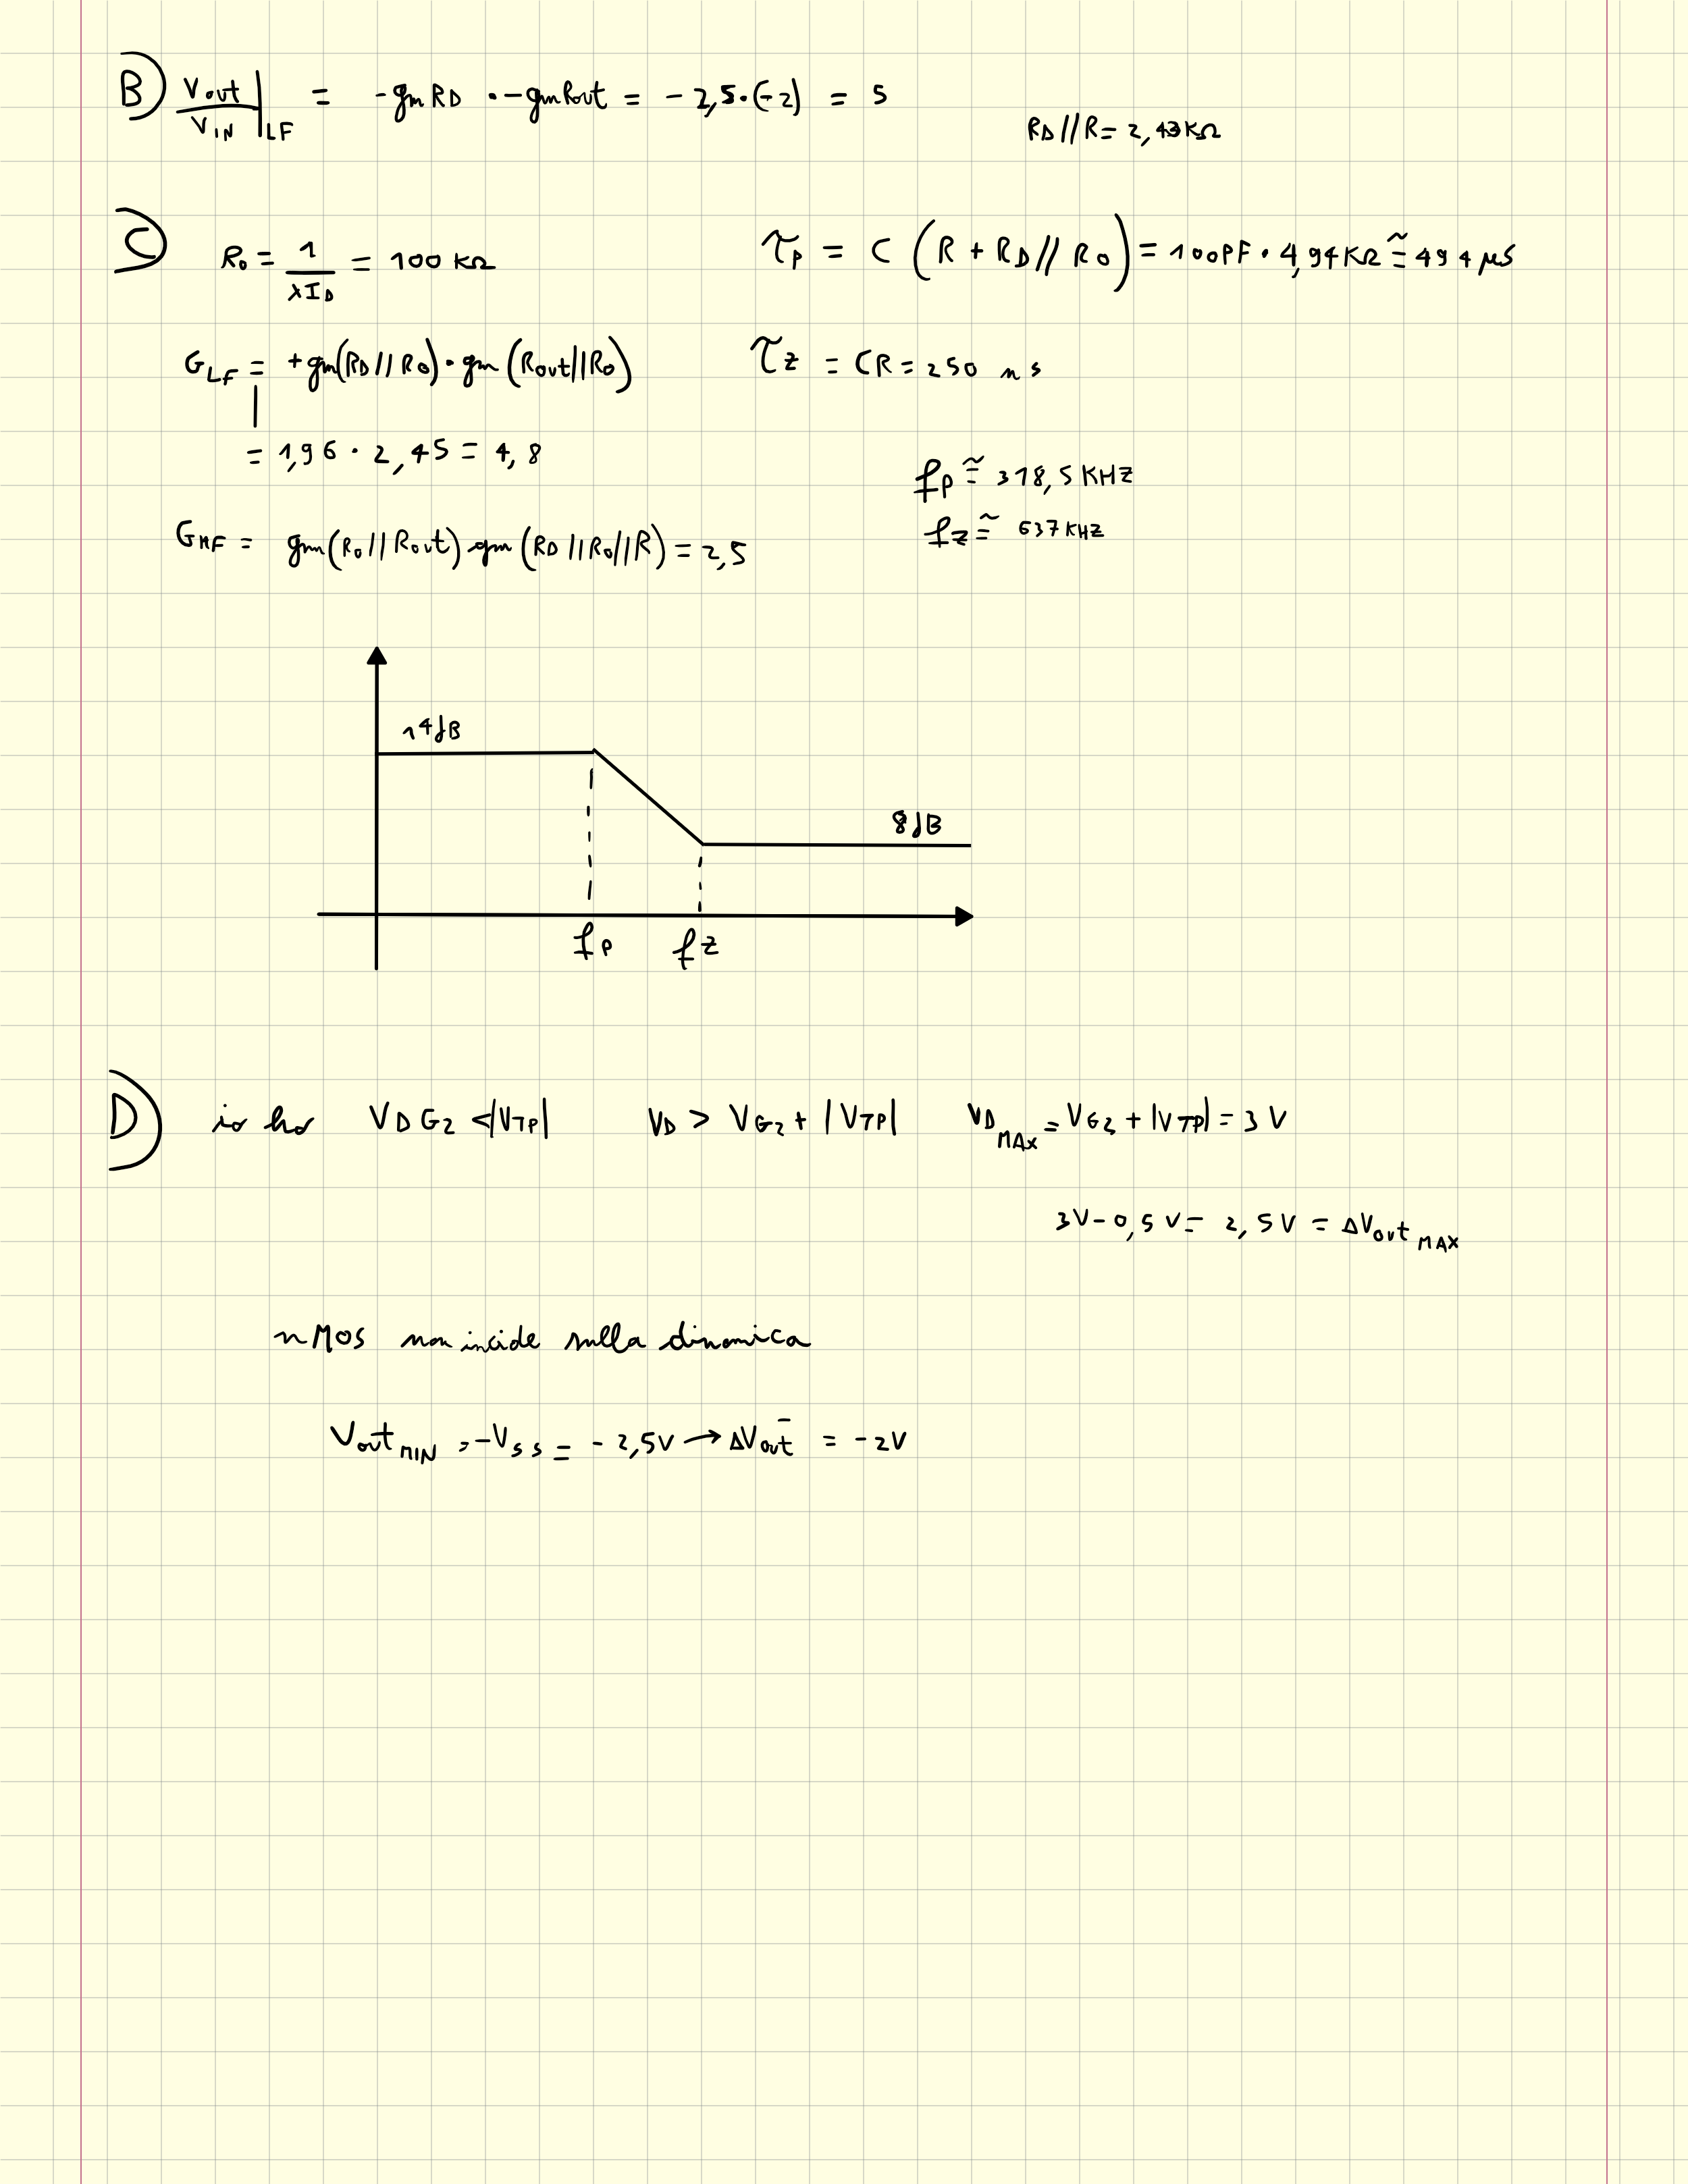 B) Vout/VIN |LF = -gm RD · -gm Rout = -2,5·(-2) = 5
RD//R = 2,43KΩ
C) Ro = 1/λID = 100 KΩ
τp = C (R + RD// Ro) = 100PF · 4,94KΩ ≅ 494 μS
GLF = +gm(RD//Ro)·gm(Rout//Ro)
τz = CR = 250 ns
= 1,96 · 2,45 = 4,8
fp ≅ 318,5 KHZ
fz ≅ 637 KHZ
GHF = gm(Ro//Rout) gm(RD//Ro//R) = 2,5
14dB
8dB
fp fz
D) io ho VDG2 <|VTP| VD > VG2 + |VTP| VD MAX = VG2 + |VTP| = 3 V
3V - 0,5 V = 2,5V = ΔVout MAX
nMOS non incide sulla dinamica
Vout MIN = -VSS = - 2,5V → ΔVout⁻ = -2V